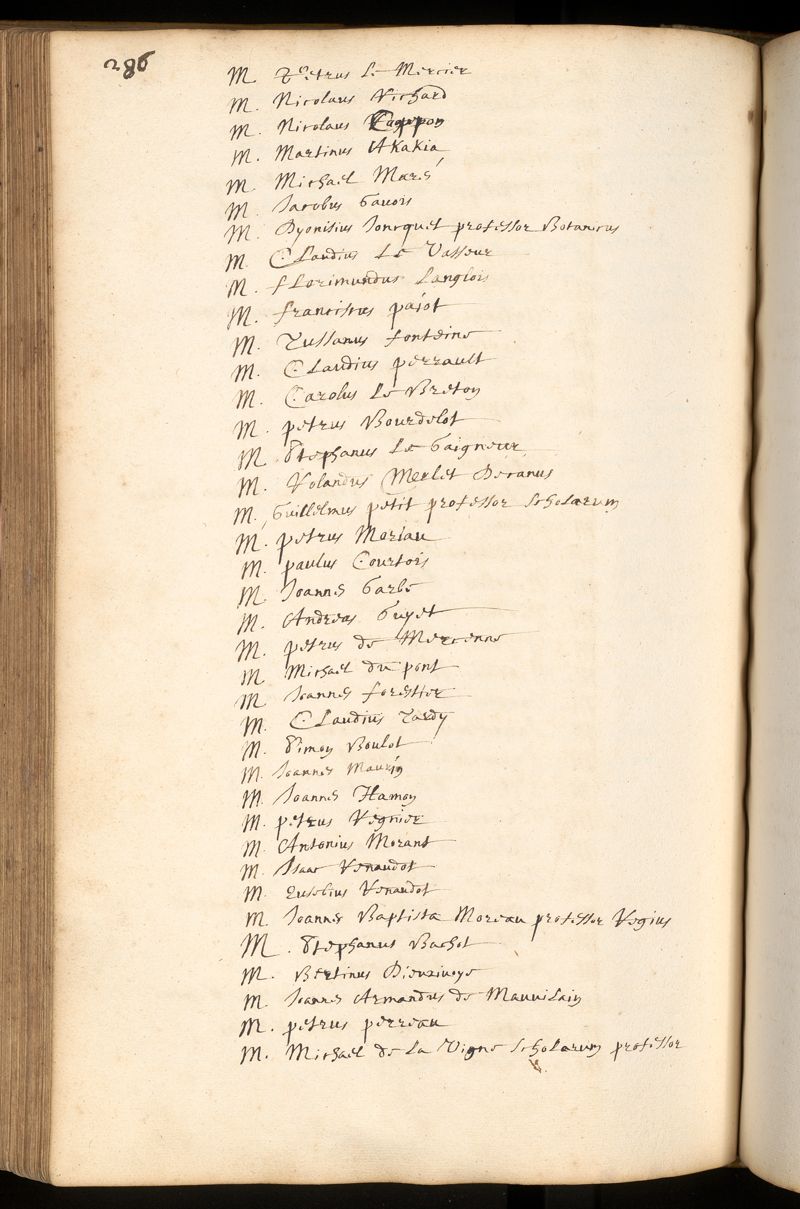 286
M. Petrus Le Mercier
M. Nicolaus Richard
M. Nicolaus Cappon
M. Martinus Akakia
M. Michael Maré
M. Jacobus Gavois
M. Dyonisius Joncquet professor Botanicus
M. Claudius Le Vasseur
M. fLorimundus Langlois
M. franciscus pajot
M. Tussanus fonteine
M. CLaudius perrault
M. Carolus Le Breton
M. petrus Bourdelot
M. Stephanus Le Gaigneur
M. Rolandus Merlet Decanus
M. Guillelmus petit professor scholarum
M. petrus Moriau
M. paulus Courtois
M. Joannes Garbe
M. Andreas Guyet
M. petrus de Mercenne
M. Michael du pont
M. Joannes forestier
M. CLaudius Tardy
M. Simon Boulot
M. Joannes Maurin
M. Joannes Hamon
M. petrus Regnier
M. Antonius Morant
M. Isaac Renaudot
M. Eusebius Renaudot
M. Joannes Baptista Moreau professor Regius
M. Stephanus Bachot
M. Bertinus Dieuxivoye
M. Joannes Armandus de Mauvilain
M. petrus perreau
M. Michael de La Vigne scholarum professor